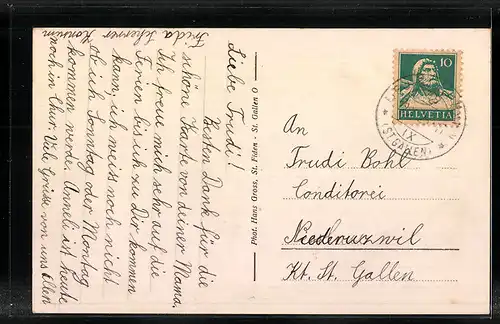 Liebe Trudi!
Besten Dank für die
schöne Karte von deiner Mama.
Ich freue mich sehr auf die
Ferien bis ich zu Dir kommen
kann, ich weis noch nicht
ob ich Sonntag oder Montag
kommen werde. Anneli ist heute
noch in Chur. Viele Grüsse von uns Allen
Frida Scherrer
Phot. Hans Gross, St. Fiden - St. Gallen O
10
HELVETIA
IX
(ST.GALLEN)
An
Trudi Bohl
Conditorei
Niederuzwil
Kt. St. Gallen